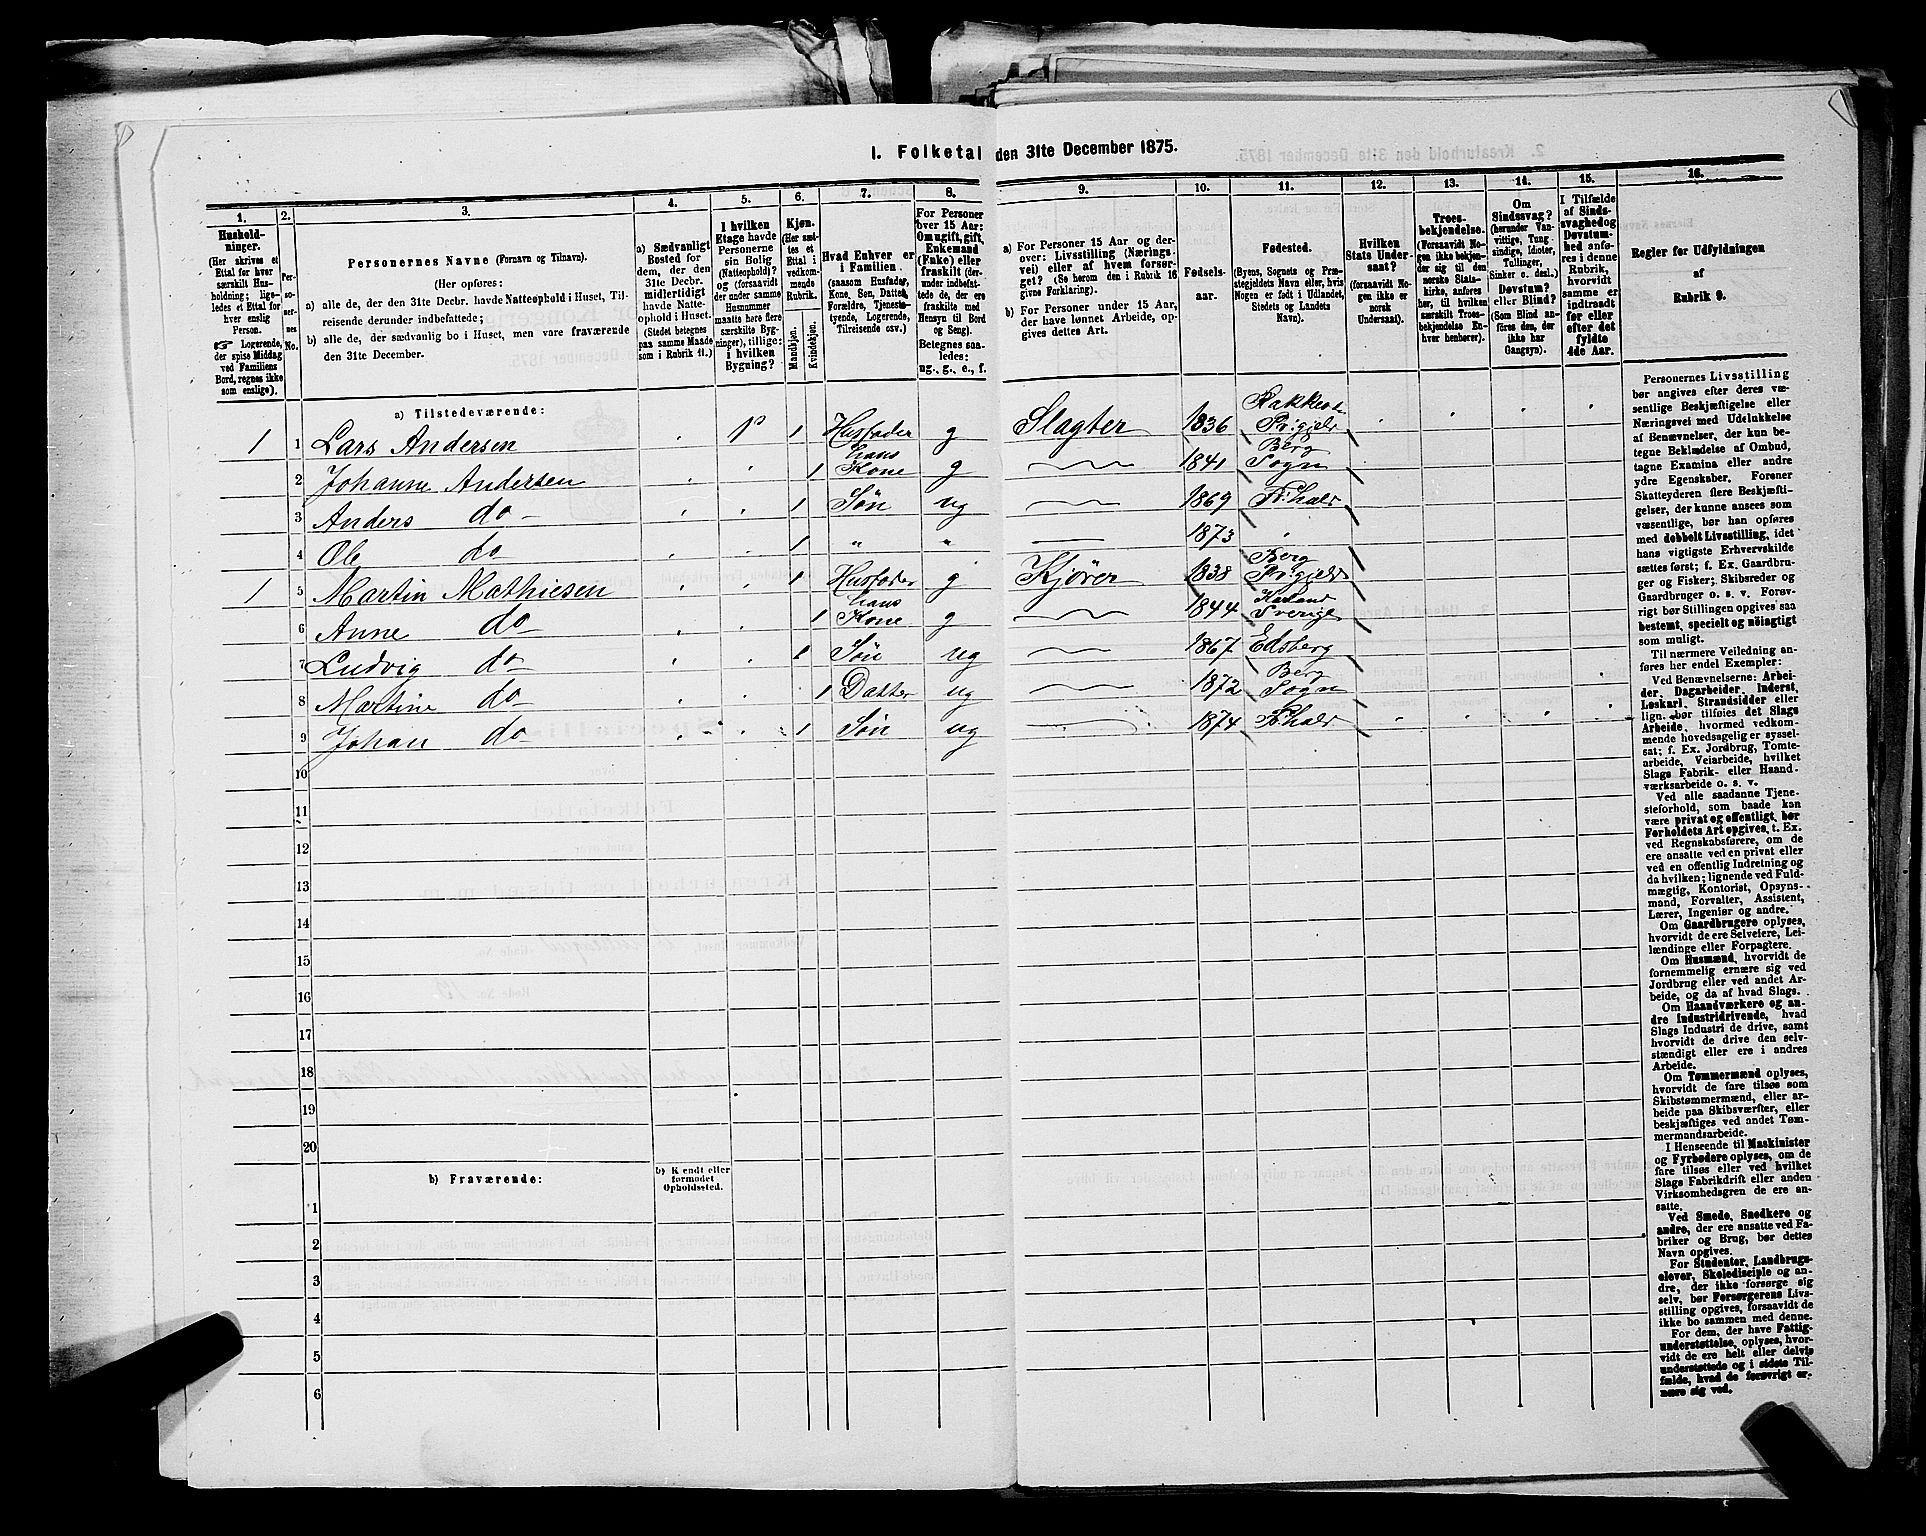 I. Folketal den 31te December 1875.
1. 2. 3. 4. 5. 6. 7. 8. 9. 10. 11. 12. 13. 14. 15. 16.
Hushold-
ninger.
(Her skrives et
Ettal for hver
særskilt Hus-
holdning; lige-
ledes et Ettal for
hver enslig
Person.
☞ Logerende,
der spise Middag
ved Familiens
Bord, regnes ikke
som enslige).
Per-
so-
ner-
nes
No.
Personernes Navne (Fornavn og Tilnavn).
(Her opføres:
a) alle de, der den 31te Decbr. havde Natteophold i Huset, Til-
reisende derunder indbefattede;
b) alle de, der sædvanlig bo i Huset, men vare fraværende
den 31te December.
a) Sædvanligt
Bosted for
dem, der den
31te Decbr.
midlertidigt
havde Natte-
ophold i Huset.
(Stedet betegnes
paa samme Maade
som i Rubrik 11.)
I hvilken
Etage havde
Personerne
sin Bolig
(Natteophold)?
og (forsaavidt
der under samme
Husnummer
maatte høre flere
særskilte Byg-
ninger), tillige:
i hvilken
Bygning?
Kjøn.
(Her sæt-
tes et
Ettal i
vedkom-
mende
Rubrik.
Mandkjøn.
Kvindekjøn.
Hvad Enhver er
i Familien
(saasom Husfader,
Kone, Søn, Datter,
Forældre, Tjeneste-
tyende, Logerende,
Tilreisende osv.)
For Personer
over 15 Aar:
Om ugift, gift,
Enkemand
(Enke) eller
fraskilt (der-
under indbefat-
tede de, der ere
fraskilte med
Hensyn til Bord
og Seng).
Betegnes saa-
ledes:
ug., g., e., f.
a) For Personer 15 Aar og der-
over: Livsstilling (Nærings-
vei) eller af hvem forsør-
get? (Se herom den i Rubrik 16
givne Forklaring).
b) For Personer under 15 Aar,
der have lønnet Arbeide, op-
gives dettes Art.
Fødsels-
aar.
Fødested.
(Byens, Sognets og Præ-
stegjeldets Navn eller, hvis
Nogen er født i Udlandet,
Stedets og Landets
Navn).
Hvilken
Stats Under-
saat?
(forsaavidt No-
gen ikke er
norsk
Undersaat).
Troes-
bekjendelse.
(Forsaavidt No-
gen ikke bekjen-
der sig til den
norske Stats-
kirke, anføres
her, til hvilken
særskilt Troes-
bekjendelse En-
hver henhører).
Om
Sindssvag?
(herunder Van-
vittige, Tung-
sindige, Idioter,
Tullinger,
Sinker o. desl.)
Døvstum?
eller Blind?
(Som Blind an-
føres den, der
ikke har
Gangsyn).
I Tilfælde
af Sinds-
svaghed og
Døvstum-
hed anfø-
res i denne
Rubrik,
hvorvidt
samme er
indtraadt
før eller
efter det
fyldte
4de Aar.
Regler for Udfyldningen
af
Rubrik 9.
a) Tilstedeværende:
1 1 Lars Andersen 1 Husfader g Slagter 1836 Rakkestad Pr:gjeld
2 Johanne Andersen 1 hans Kone g 1841 Berg Sogn
3 Anders do 1 Søn ug 1869 Fr:hald
4 Ole do 1 " " 1873
1 5 Martin Mathiesen 1 Husfader g Kjører 1838 Berg Pr:gjeld
6 Anne do 1 hans Kone g 1844 Sverige
7 Ludvig do 1 Søn ug 1867 Edsberg
8 Martine do 1 Datter ug 1872 Berg Sogn
9 Johan do 1 Søn ug 1874 Fr:hald
10
11
12
13
14
15
16
17
18
19
20
b) Fraværende:
b) Kjendt eller
formodet
Opholdssted.
1
2
3
4
5
6
Personernes Livsstilling
bør angives efter deres væ-
sentlige Beskjæftigelse eller
Næringsvei med Udelukkelse
af Benævnelser, der kun be-
tegne Beklædelse af Ombud,
tagne Examina eller andre
ydre Egenskaber. Forener
Skatteyderen flere Beskjæfti-
gelser, der kunne ansees som
væsentlige, bør han opføres
med dobbelt Livsstilling, idet
hans vigtigste Erhvervskilde
sættes først; f. Ex. Gaardbru-
ger og Fisker; Skibsreder og
Gaardbruger o. s. v. Forøv-
rigt bør Stillingen opgives saa
bestemt, specielt og nöiagtigt
som muligt.
Til nærmere Veiledning an-
føres her endel Exempler:
Ved Benævnelserne: Arbei-
der, Dagarbeider, Inderst,
Løskarl, Strandsidder eller
lign. bør tilføies det Slags
Arbeide, hvormed vedkom-
mende hovedsagelig er syssel-
sat; f. Ex. Jordbrug, Tomte-
arbeide, Veiarbeide, hvilket
Slags Fabrik- eller Haand-
værksarbeide o. s. v.
Ved alle saadanne Tjene-
steforhold, som baade kan
være privat og offentligt, bør
Forholdets Art opgives, t. Ex.
ved Regnskabsførere, om de
ere ansatte ved en privat eller
ved en offentlig Indretning og
da hvilken; lignende ved Fuld-
mægtig, Kontorist, Opsyns-
mand, Forvalter, Assistent,
Lærer, Ingeniør og andre.
Om Gaardbrugere oplyses,
hvorvidt de ere Selveiere, Lei-
lændinge eller Forpagtere.
Om Husmænd, hvorvidt de
fornemmelig ernære sig ved
Jordbrug eller ved andet Ar-
beide, og da af hvad Slags.
Om Haandværkere og an-
dre Industridrivende, hvad
Slags Industri de drive, samt
hvorvidt de drive den selv-
stændigt eller ere i andres
Arbeide.
Om Tømmermænd oplyses,
hvorvidt de fare tilsøs som
Skibstømmermænd, eller ar-
beide paa Skibsværfter, eller
beskjæftiges ved andet Tøm-
mermandsarbeide.
I Henseende til Maskinister
og Fyrbødere oplyses, om de
fare tilsøs eller ved hvilket
Slags Fabrikdrift eller anden
Virksomhedsgren de ere an-
satte.
Ved Smede, Snedkere og
andre, der ere ansatte ved Fa-
briker og Brug, bør dettes
Navn opgives.
For Studenter, Landbrugs-
elever, Skoledisciple og an-
dre, der ikke forsørge sig
selv, bør Forsørgerens Livs-
stilling opgives, forsaavidt de
ikke bo sammen med denne.
For dem, der have Fattig-
understøttelse, oplyses, hvor-
vidt de ere helt eller delvis
understøttede og i sidste Til-
fælde, hvad de forøvrigt er-
nære sig ved.